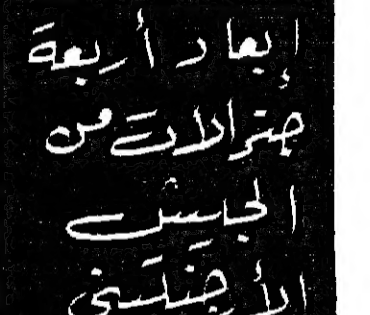 إبعاد أربعة
جنرالات من
الجيش
الأرجنتيني